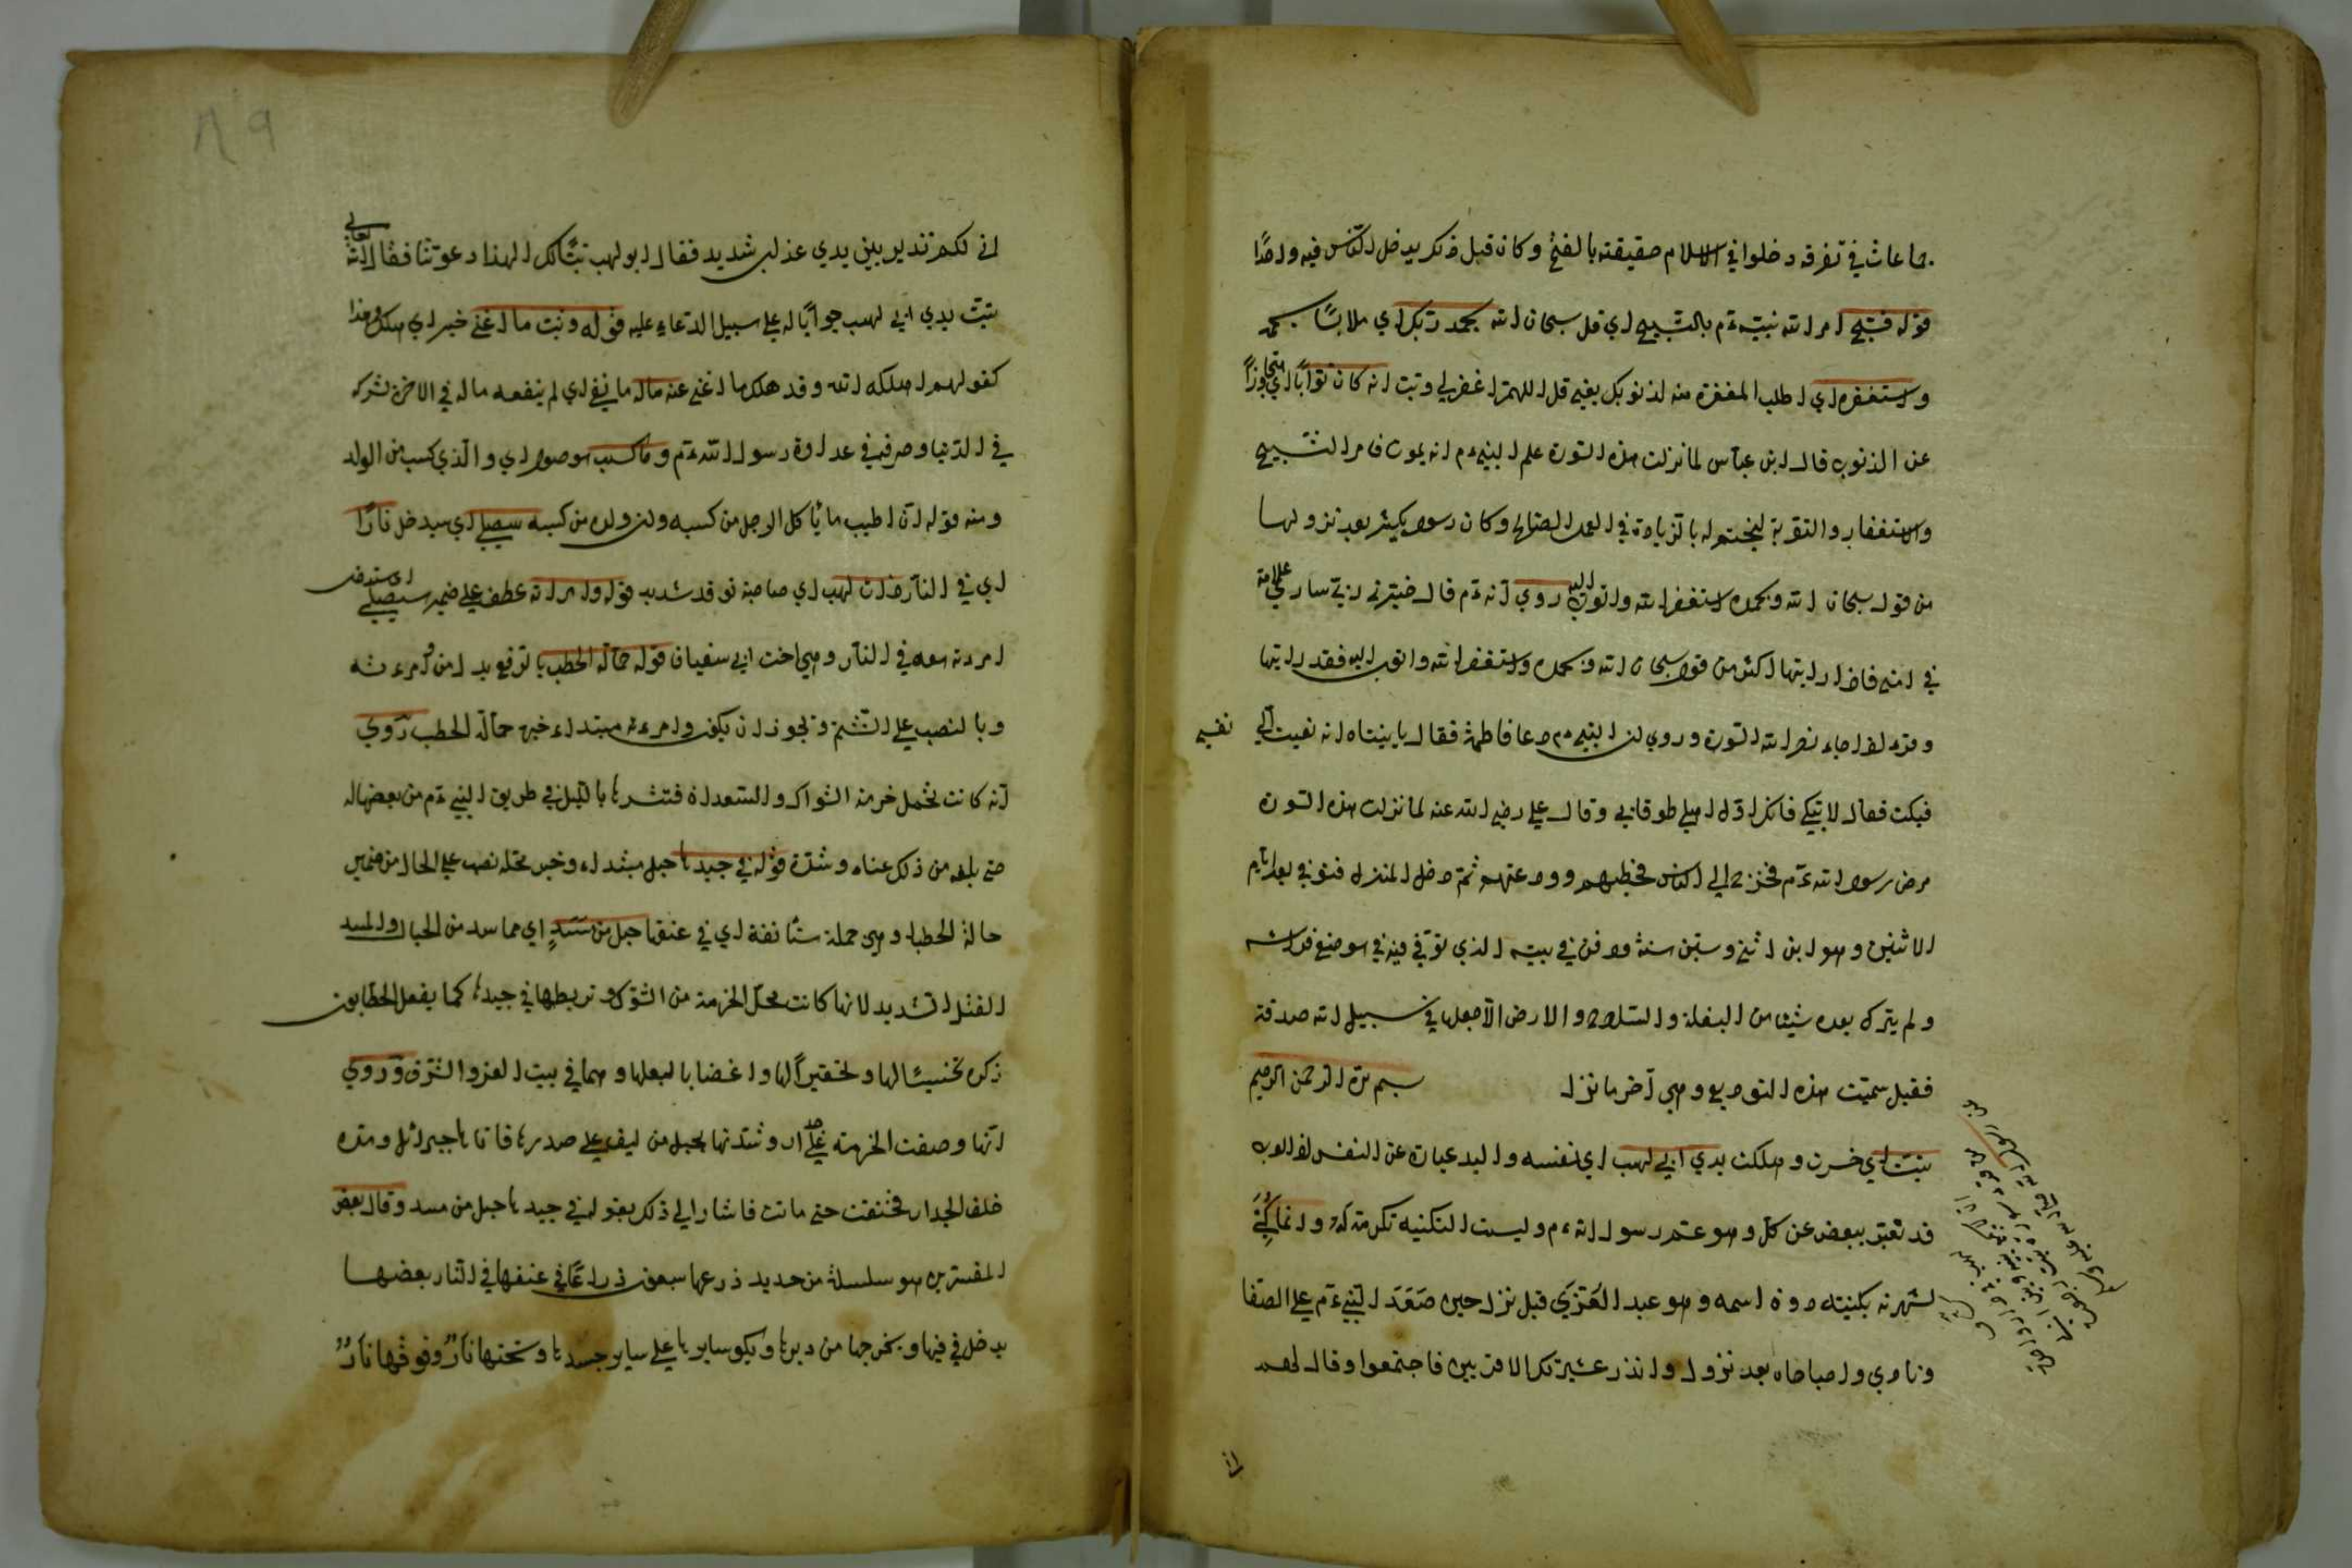 جماعات في تفرقة دخلوا في الاسلام حقيقته بالفتح وكان قبل ذلك يدخل الناس فيه واحدًا
قوله فسبح امر الله نبيه ءم بالتسبيح اي قل سبحان الله بحمد ربك اي ملابسًا بحمد
واستغفره اي اطلب المغفرة منه لذنوبك يعني قل اللهم اغفر لي وتب انه كان توابًا اي متجاوزًا
عن الذنوب قال ابن عباس لما نزلت هذه السورة علم النبي ءم انه يموت فامر التسبيح
والاستغفار والتوبة ليختم له بالزيادة في العمل الصالح وكان رسول يكثر بعد نزولها
من قول سبحان الله وبحمده استغفر الله واتوب اليه روي انه ءم قال خبرني ربي سارى علامة
في امتي فاذا رايتها اكثر من قول سبحان الله وبحمده واستغفر الله واتوب اليه فقد رايتها
وقرء اذا جاء نصر الله السورة وروي ان النبي ءم دعا فاطمة فقال يا بنتاه انه نعيت الي نفسي
فبكت فقال لا تبكي فانك اول اهلي طوقا بي وقال علي رضي الله عنه لما نزلت هذه السورة
مرض رسول الله ءم فخرج الى الناس فخطبهم وودعتهم ثم دخل المنزل فتوفي بعد ايام
الاثنين وهو ابن اثني وستين سنة ودفن في بيته الذي توفي فيه في موضع فراشه
ولم يترك بعده شيئا من البغلة والسلاح والارض الا جعلها في سبيل الله صدقة
فقيل سميت هذه التوديع وهي آخر ما نزل بسم الله الرحمن الرحيم
تبت اي خسرت وهلكت يدي ابي لهب اي نفسه واليد عبارة عن النفس اذ العرب
قد تعبر ببعض عن كل وهو عم رسول الله ءم وليست التكنيه تكرمة له وانما كني
لشهرته بكنيته دون اسمه وهو عبد العزي قيل نزل حين صعد النبي ءم على الصفا
ونادي واصباحاه بعد نزول وانذر عشيرتك الاقربين فاجتمعوا وقال لهم
اني لكم نذير بين يدي عذاب شديد فقال ابو لهب تبًا لك الهذا دعوتنا فقال الله تعالى
تبت يدي ابي لهب جوابًا له على سبيل الدعاء عليه قوله وتب ما اغنى خبر اي هلك وهذا
كقولهم اهلكه الله وقد هلك ما اغنى عنه ماله ما نفي اي لم ينفعه ماله في الاخرة تركه
في الدنيا وصرفه في عداوة رسول الله ءم وما كسب موصول اي والذي كسب من الولد
ومنه قوله ان اطيب ما يأكل الرجل من كسبه وان ولده من كسبه سيصلى اي سيدخل نارًا
اي في النار ذات لهب اي صاحبة توقد شديد قوله وامراته عطف على ضمير سيصلى اي ستدخل
امرءته معه في النار وهي اخت ابي سفيان قوله حمالة الحطب بالرفع بدل من وامرءته
وبالنصب على الشتم ويجوز ان يكون وامرءته مبتداء خبره حمالة الحطب روي
انه كانت تحمل خزمة الشوك والسعدان فتنشرها بالليل في طريق النبي ءم من بعضها له
حتى بلغه من ذلك عناء وشدة قوله في جيدها حبل مبتداء وخبر محله نصب على الحال من ضمير
حالة الحطب او هي جملة مستأنفة اي في عنقها حبل من مسد اي مما مسد من الحبال والمسد
الفتل الشديد لانها كانت تحمل الخزمة من الشوك وتربطها في جيدها كما يفعل الحطابون
ذكره تخسيسًا لها وتحقيرًا لها واغضابا لبعلها وهما في بيت العز والشرف وروي
انها وضعت الخزمة على جدار وشدتها بحبل من ليف على صدرها فاتاها جبرائل ومده
خلف الجدار فخنقت حتى ماتت فاشار الى ذلك بقوله في جيدها حبل من مسد وقال بعض
المفسرين هو سلسلة من حديد ذرعها سبعون ذراعًا في عنقها في النار بعضها
يدخل في فيها ويخرجها من دبرها ويكو سايرها على ساير جسدها وتحتها نار وفوقها نار
٨٩